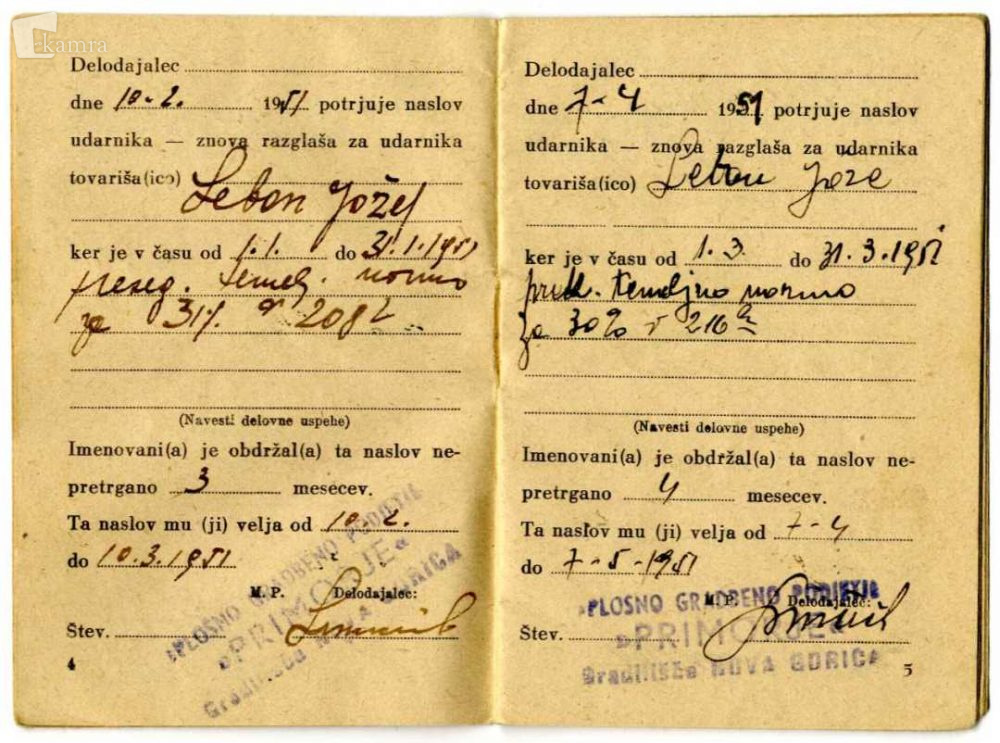 kamra
Delodajalec
dne 10-2. 1951 potrjuje naslov
udarnika — znova razglaša za udarnika
tovariša(ico) Lebon Jožef
ker je v času od 1.1. do 31.1.1951
preseg. temelj. normo
za 31% v 208 h
(Navesti delovne uspehe)
Imenovani(a) je obdržal(a) ta naslov ne-
pretrgano 3 mesecev.
Ta naslov mu (ji) velja od 10.2.
do 10.3.1951
M. P. Delodajalec:
Štev.
SPLOŠNO GRADBENO PODJETJE
»PRIMORJE«
Gradilišče NOVA GORICA
4
Delodajalec
dne 7-4 1951 potrjuje naslov
udarnika — znova razglaša za udarnika
tovariša(ico) Lebon Jože
ker je v času od 1.3. do 31.3.1951
prek. temeljno normo
za 30% v 216 h
(Navesti delovne uspehe)
Imenovani(a) je obdržal(a) ta naslov ne-
pretrgano 4 mesecev.
Ta naslov mu (ji) velja od 7-4
do 7-5-1951
M. P. Delodajalec:
Štev.
SPLOŠNO GRADBENO PODJETJE
»PRIMORJE«
Gradilišče NOVA GORICA
5